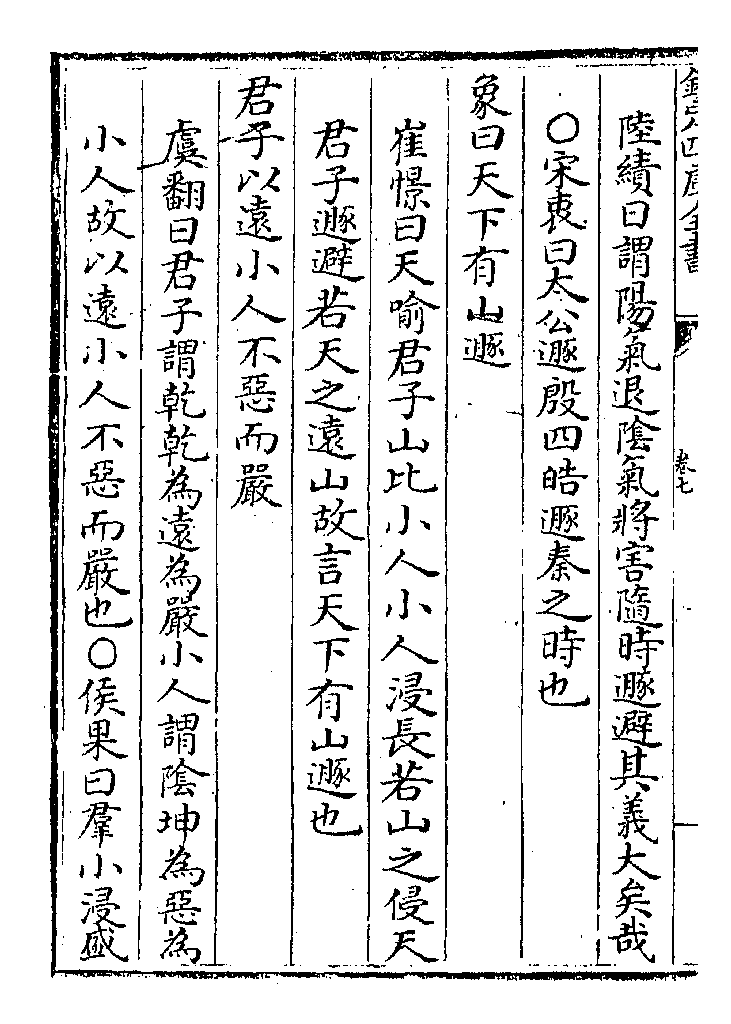 欽定四庫全書
卷七
陸績曰謂陽氣退陰氣將害隨時遯避其義大矣哉
○宋衷曰太公遯殷四皓遯秦之時也
象曰天下有山遯
崔憬曰天喻君子山比小人小人浸長若山之侵天
君子遯避若天之遠山故言天下有山遯也
君子以遠小人不惡而嚴
虞翻曰君子謂乾乾為遠為嚴小人謂陰坤為惡為
小人故以遠小人不惡而嚴也○侯果曰羣小浸盛